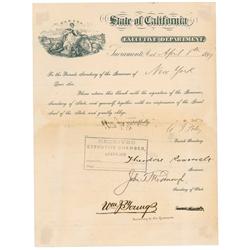 State of California
EXECUTIVE DEPARTMENT
Sacramento, Cal. April 1st, 1899
To the Private Secretary of the Governor of New York
Dear Sir:
Please return this blank with the signature of the Governor,
Secretary of State, and yourself, together with an impression of the Great
Seal of the State, and greatly oblige,
Yours very respectfully,
RECEIVED
EXECUTIVE CHAMBER,
Private Secretary
Theodore Roosevelt
Governor
John T. McDonough
Secretary of State
Wm. J. Youngs
Secretary to the Governor